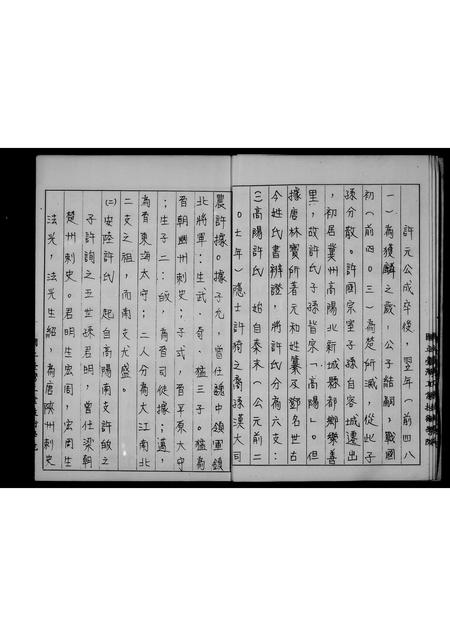 許元公成卒後，翌年（前四八
一）為獲麟之歲，公子結嗣，戰國
初（前四０三）為楚所滅，從此子
孫分散。許國宗室子孫自容城遷出
，初居冀州高陽北新城縣都鄉樂善
里，故許氏子孫皆宗「高陽」。但
據唐林寶所著元和姓纂及鄧名世古
今姓氏書辨證，將許氏分為六支：
㈠高陽許氏　始自秦末（公元前二
０七年）隱士許猗之裔孫漢大司
農許據。據子允，曾仕魏中領軍鎮
北將軍：生武、奇、猛三子。猛為
晉朝幽州刺史；子式，晉平原大守
；生子二：皈，為晉司徒掾；邁，
為晉東海太守；二人分為大江南北
二支之祖，而南支尤盛。
㈡安陸許氏　起自高陽南支許皈之
子許詢之五世孫君明，曾仕梁朝
楚州刺史。君明生宏周，宏周生
法光，法光生紹，為唐陝州刺史